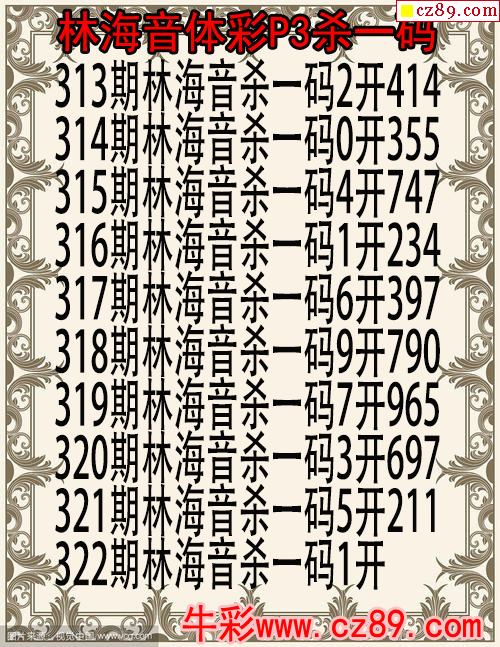 cz89.com
林海音体彩P3杀一码
313期林海音杀一码2开414
314期林海音杀一码0开355
315期林海音杀一码4开747
316期林海音杀一码1开234
317期林海音杀一码6开397
318期林海音杀一码9开790
319期林海音杀一码7开965
320期林海音杀一码3开697
321期林海音杀一码5开211
322期林海音杀一码1开
牛彩www.cz89.com
图片来源：视觉中国 www.vcg.com